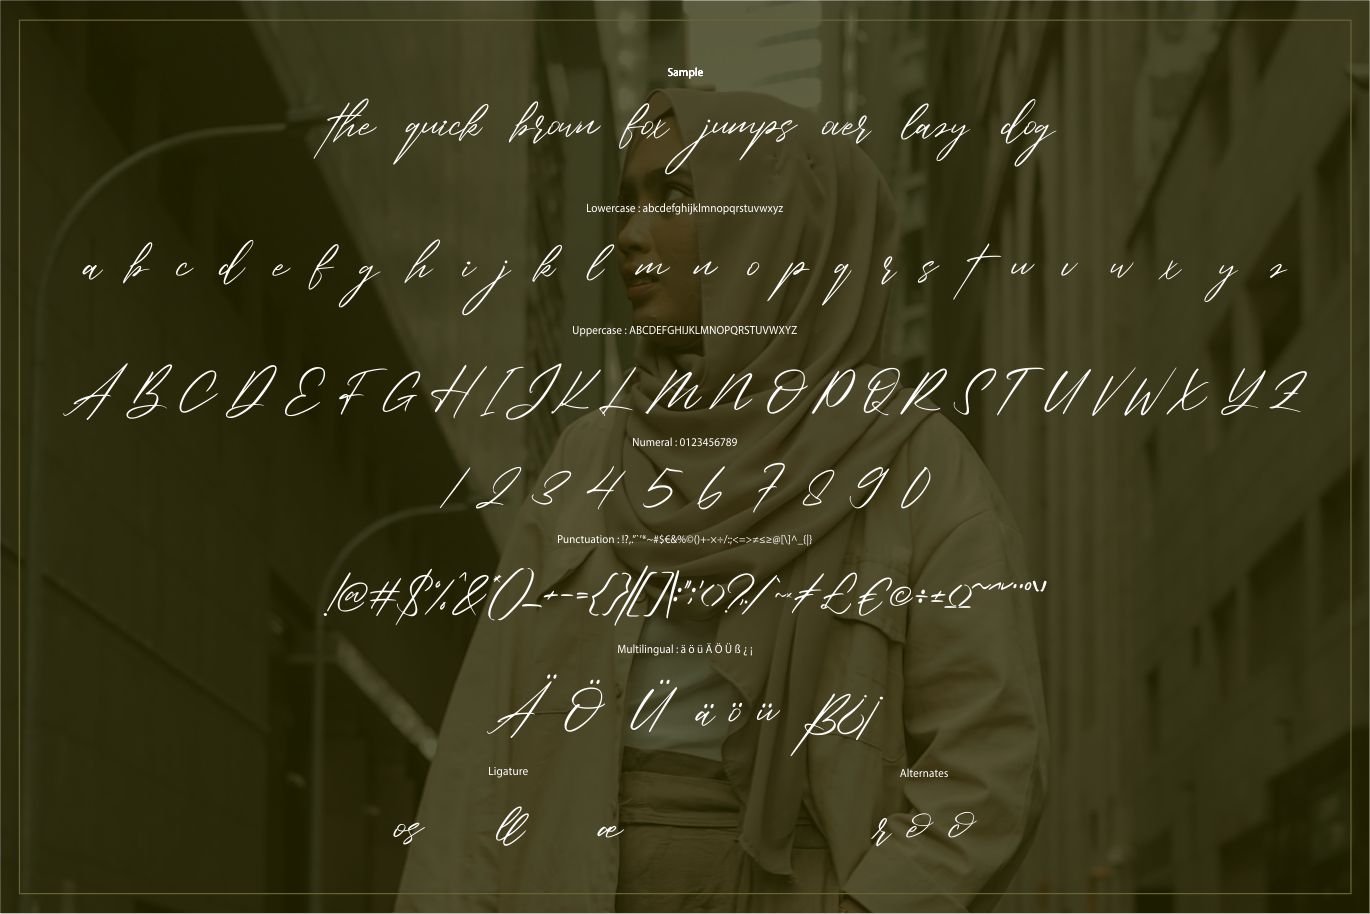 Sample
the quick brown fox jumps over lazy dog
Lowercase : abcdefghijklmnopqrstuvwxyz
a b c d e f g h i j k l m n o p q r s t u v w x y z
Uppercase : ABCDEFGHIJKLMNOPQRSTUVWXYZ
A B C D E F G H I J K L M N O P Q R S T U V W X Y Z
Numeral : 0123456789
1 2 3 4 5 6 7 8 9 0
Punctuation : !?,."`'*~#$€&%©()+-×÷/:;<=>≠≤≥@[\]^_{|}
!@#$%^&*()_+-={}|[]\:";'<>?,./`~×≠£€©÷±Ω
Multilingual : ä ö ü Ä Ö Ü ß ¿ ¡
Ä Ö Ü ä ö ü ß¿¡
Ligature
Alternates
os ll æ
r